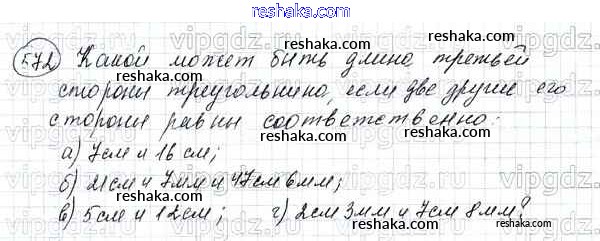 reshaka.com
572 Какой может быть длина третьей
стороны треугольника, если две другие его
стороны равны соответственно:
а) 7см и 16 см;
б) 21см и 7мм и 47см 6мм;
в) 5см и 12см; г) 2см 3мм и 7см 8мм?
reshaka.com
reshaka.com
reshaka.com
reshaka.com
reshaka.com
reshaka.com
reshaka.com